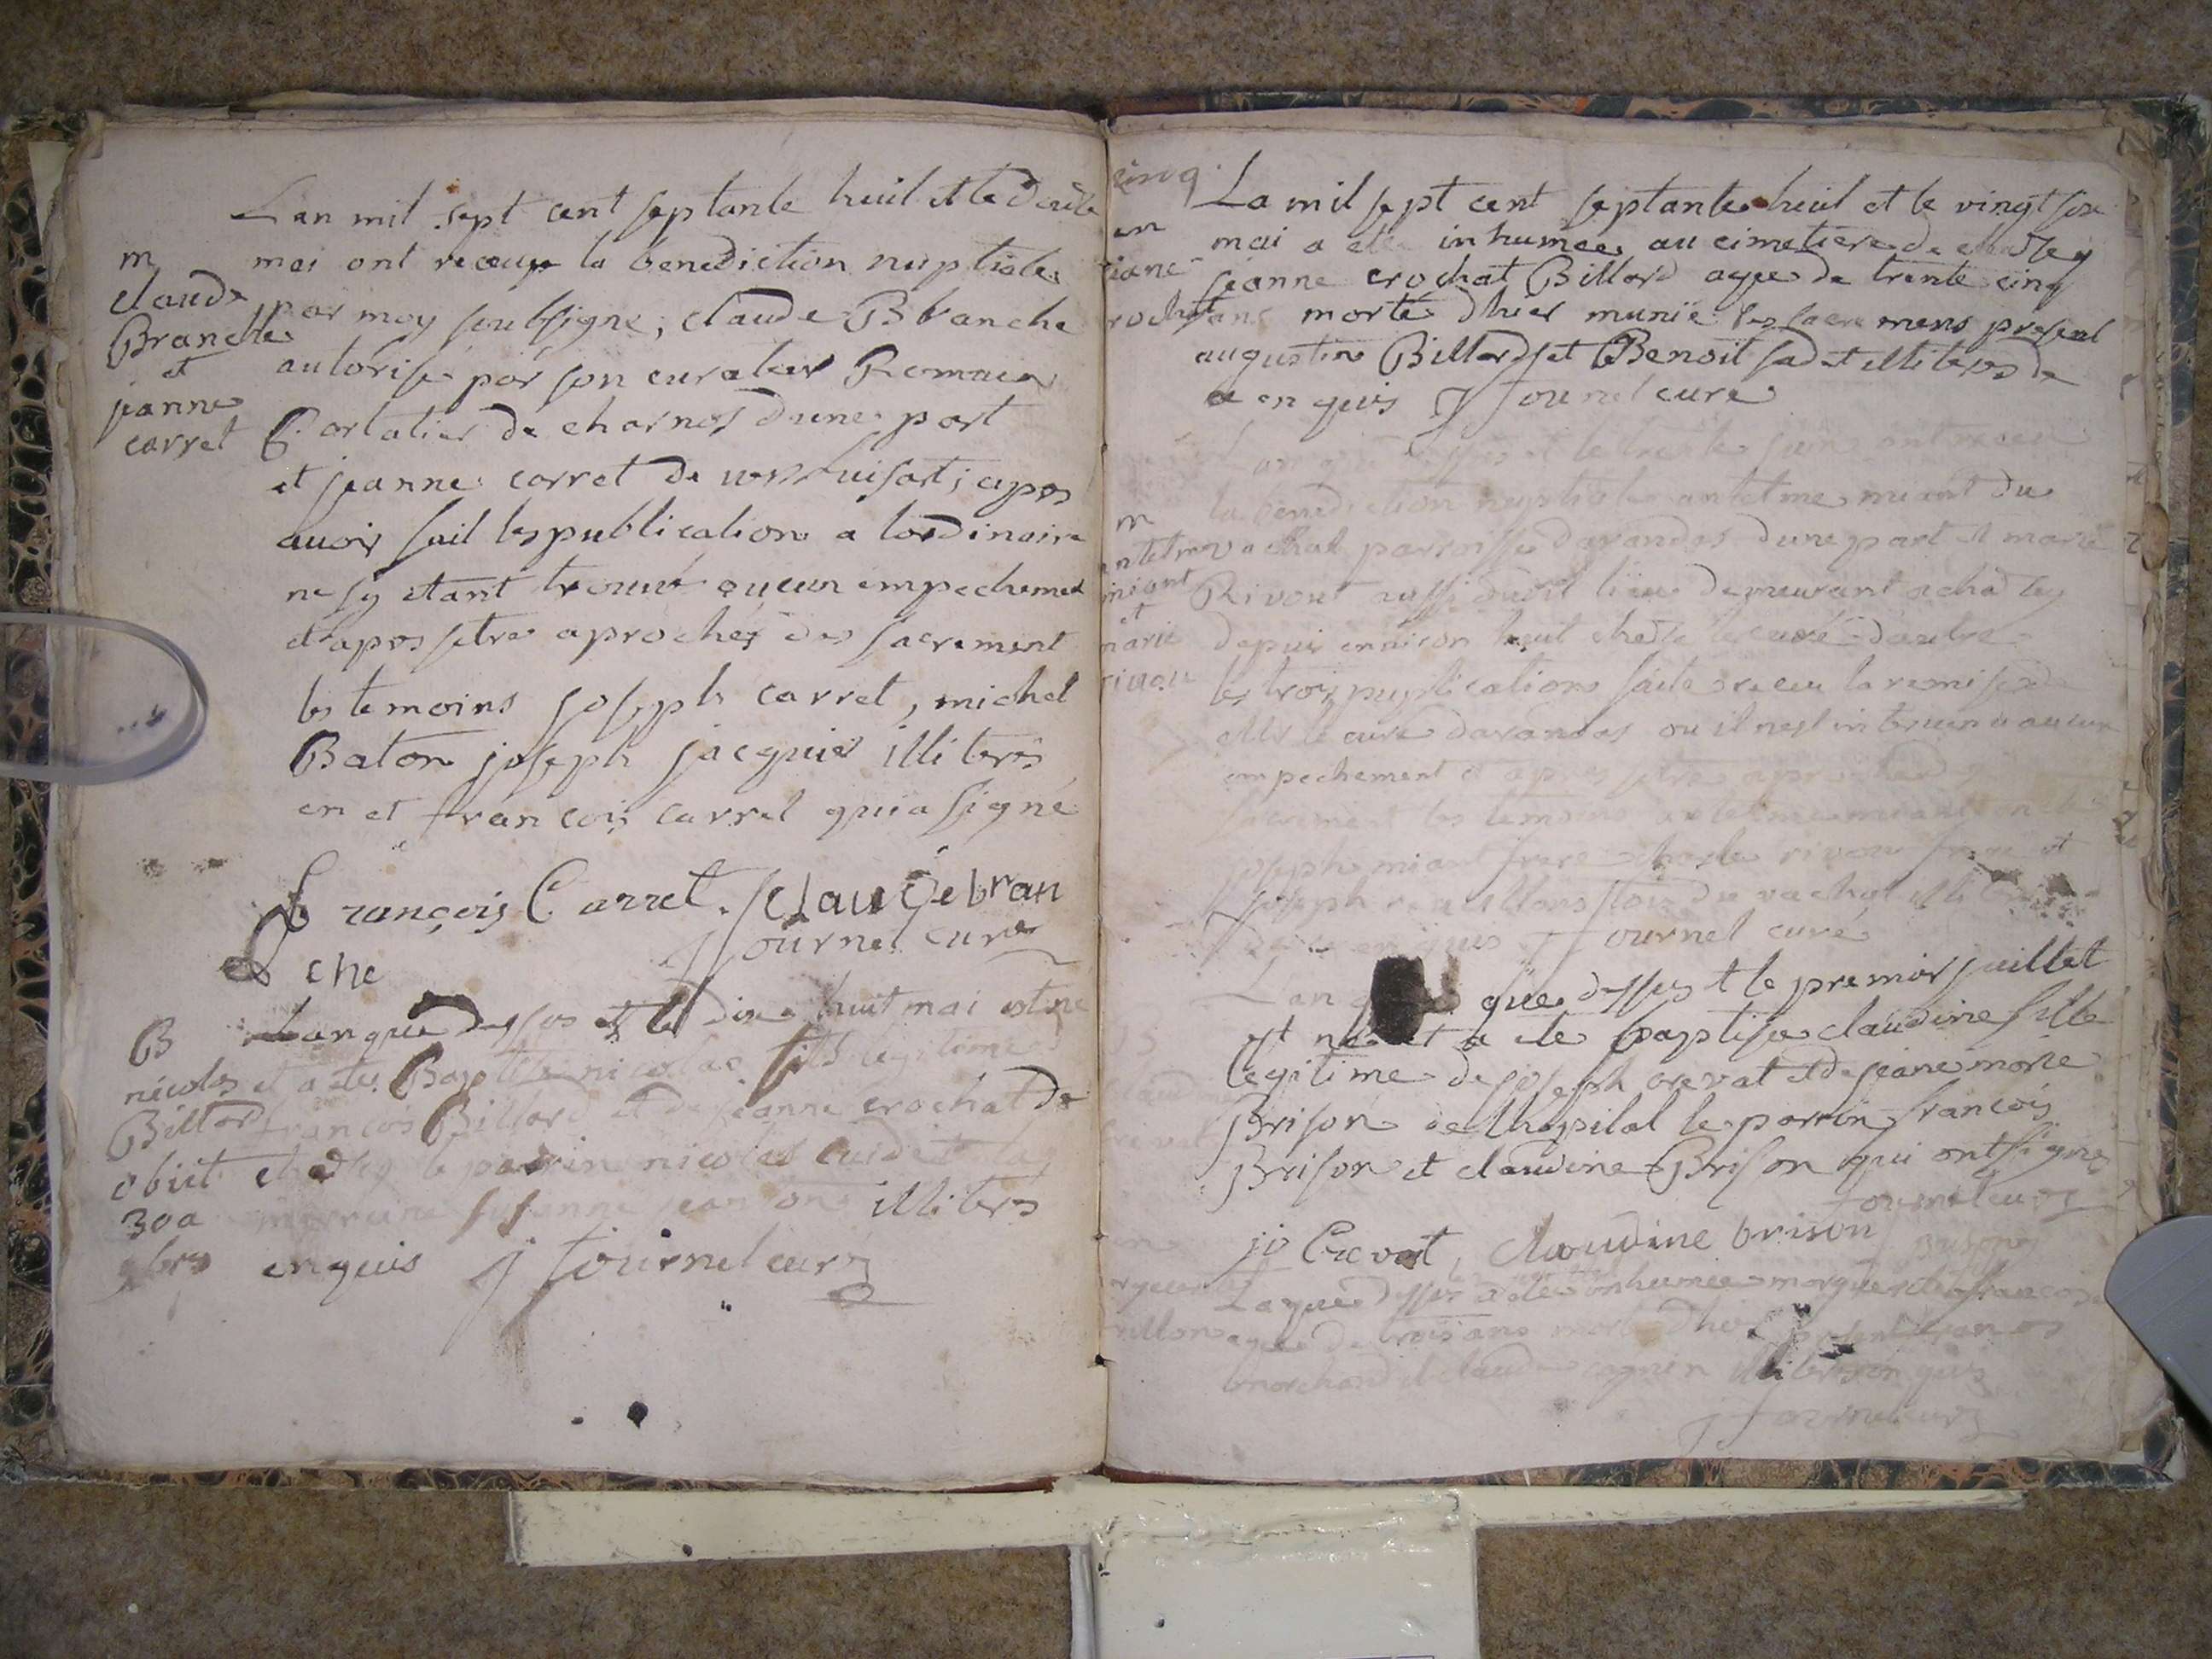 Lan mil sept cent septante huit et le douze
mai ont receup la benediction nuptiale
par moy soubsigne, claude Branche
autorisé par son curateur Romain
Cartatier de charnos dune part
et jeanne carret de apres
avoir fait les publication a lordinaire
ne sy etant trouvé aucun empechement
et apres setre aprochéz des sacrement
les temoins joseph carret, michel
Baton joseph jacquier illiteres
en et francois carret qui a signé
m
claude
Branche
et
jeanne
carret
François Carret. claudebran
che
J fournel curé
B
nicolas
Billard
obiit
30 a
9bre
Lan que dessus et le dix huit mai est ne
et a ete Baptisé nicolas fils legitime
francois Billard et de jeanne crochat de
le parrin nicolas
marreine jeanne illiteres
enquis J fournel curé
cinq
La mil sept cent septante huit et le vingt six
mai a ete inhumée au cimetiere de
jeanne crochat Billard agee de trente cinq
ans morte dhier munie des sacremens present
augustin Billard et Benoit illiteres de
a enquis J fournel curé
Lan que dessus et le trente juin ont receu
la benediction nuptiale antelme miant du
vachat parroisse darandas dune part et marie
Rivout aussi dudit lieu demeurant a
depuis environ huit chez le curé dautre
les trois publications faite receu la remise de
Mr le curé darandas ou il nest intervenu aucun
empechement et apres setre aproché
sacrement les temoins antelme miant
joseph miant frere charle rivout frere et
joseph tous du vachat illiteres
enquis J fournel curé
m
antelme
miant
et
marie
rivout
Lan que dessus et le premier juillet
est né et a ete baptisée claudine fille
legitime de joseph crevat et de jeane marie
Brison de lhopital le parrin francois
Brison et claudine Brison qui ont signe
fournel curé
jo Crevat, claudine brison
La que dessus a ete inhumee marguerite
agee de trois ans morte dhier present francois
marchand et claude cognin illiteres enquis
J fournel curé